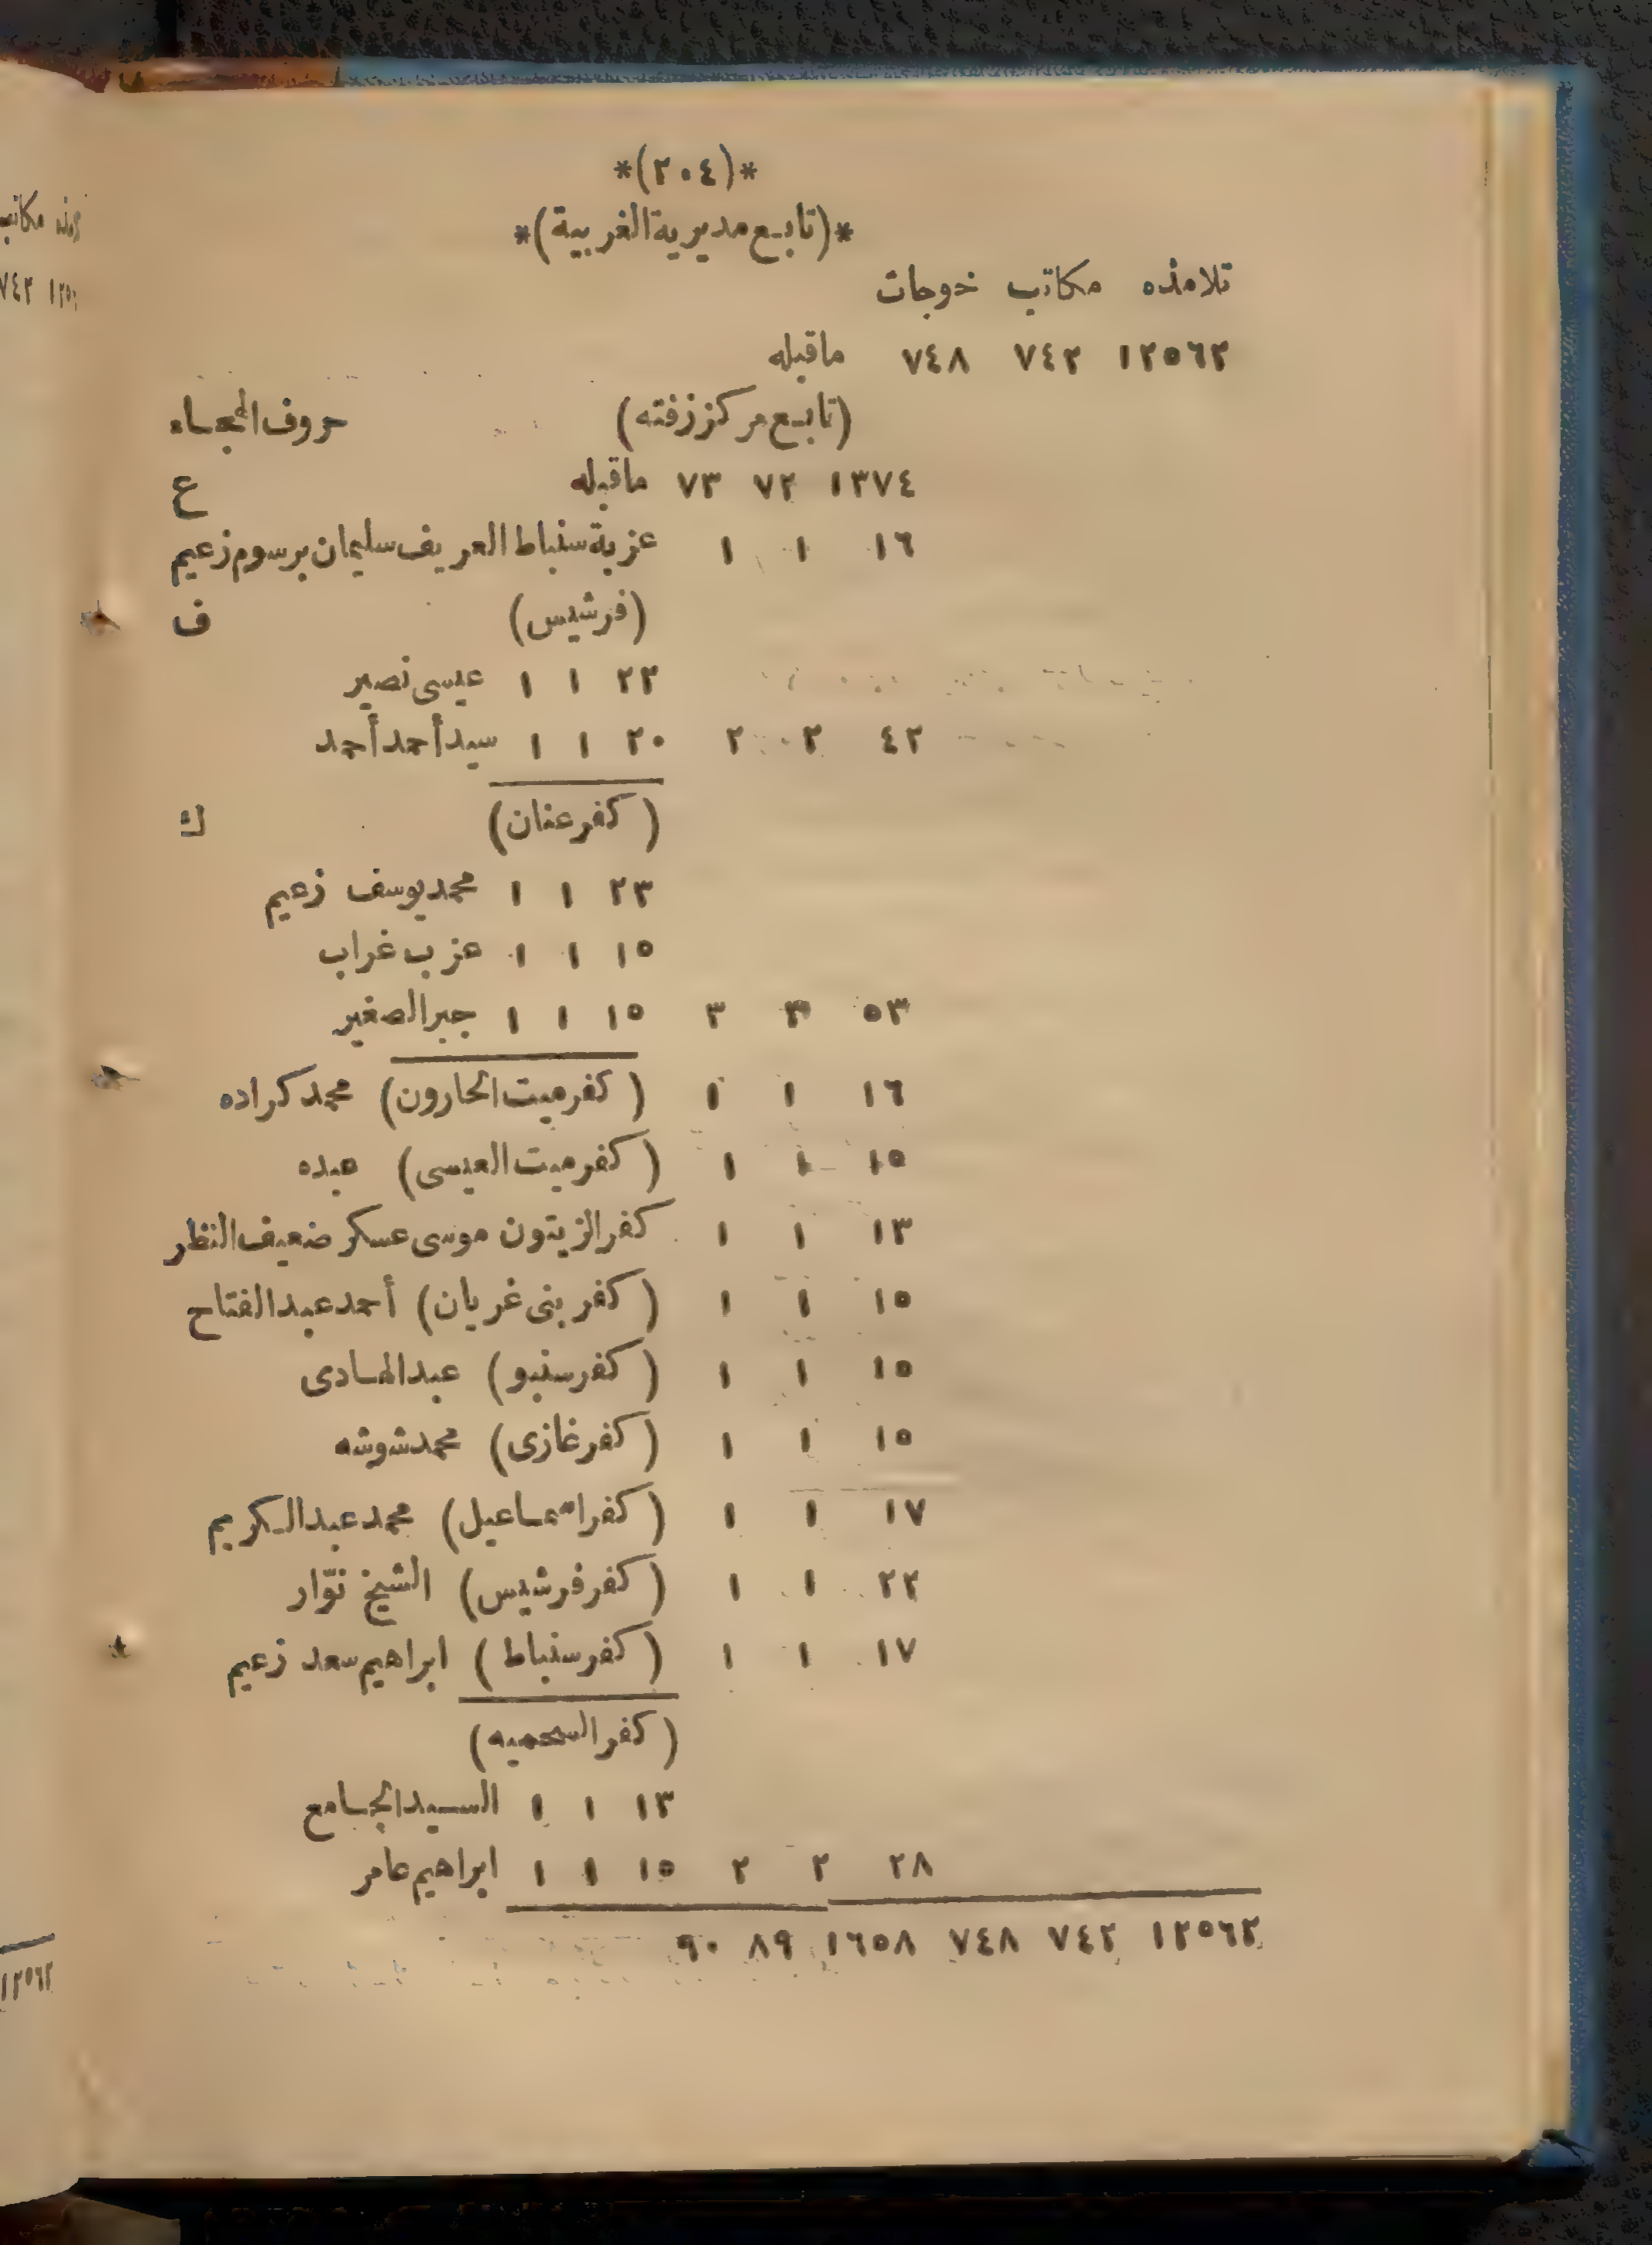 *(٢٠٤)*
*(تابع مديرية الغربية)*
تلامذه مكاتب خوجات
١٢٥٦٢ ٧٤٢ ٧٤٨ ماقبله
(تابع مركز زفته) حروف الهجاء
١٣٧٤ ٧٢ ٧٣ ماقبله ع
١٦ ١ ١ عزبة سنباط العريف سليمان برسوم زعيم
(فرشيس) ف
٢٢ ١ ١ عيسى نصير
٤٢ ٢ ٢ ٢٠ ١ ١ سيد أحمد أحمد
(كفر عنان) ك
٢٣ ١ ١ محمد يوسف زعيم
١٥ ١ ١ عزب غراب
٥٣ ٣ ٣ ١٥ ١ ١ جبر الصغير
١٦ ١ ١ (كفر ميت الحارون) محمد كراده
١٥ ١ ١ (كفر ميت العبسى) عبده
١٣ ١ ١ كفر الزيتون موسى عسكر ضعيف النظر
١٥ ١ ١ (كفر بنى غريان) أحمد عبد الفتاح
١٥ ١ ١ (كفر سنبو) عبد الهادى
١٥ ١ ١ (كفر غازى) محمد شوشه
١٧ ١ ١ (كفر اسماعيل) محمد عبد الكريم
٢٢ ١ ١ (كفر فرشيس) الشيخ نوّار
١٧ ١ ١ (كفر سنباط) ابراهيم سعد زعيم
(كفر السحميه)
١٣ ١ ١ السيد الجامع
٢٨ ٢ ٢ ١٥ ١ ١ ابراهيم عامر
١٢٥٦٢ ٧٤٢ ٧٤٨ ١٦٥٨ ٨٩ ٩٠